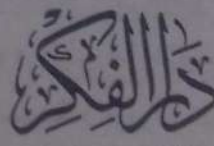 دار الفكر